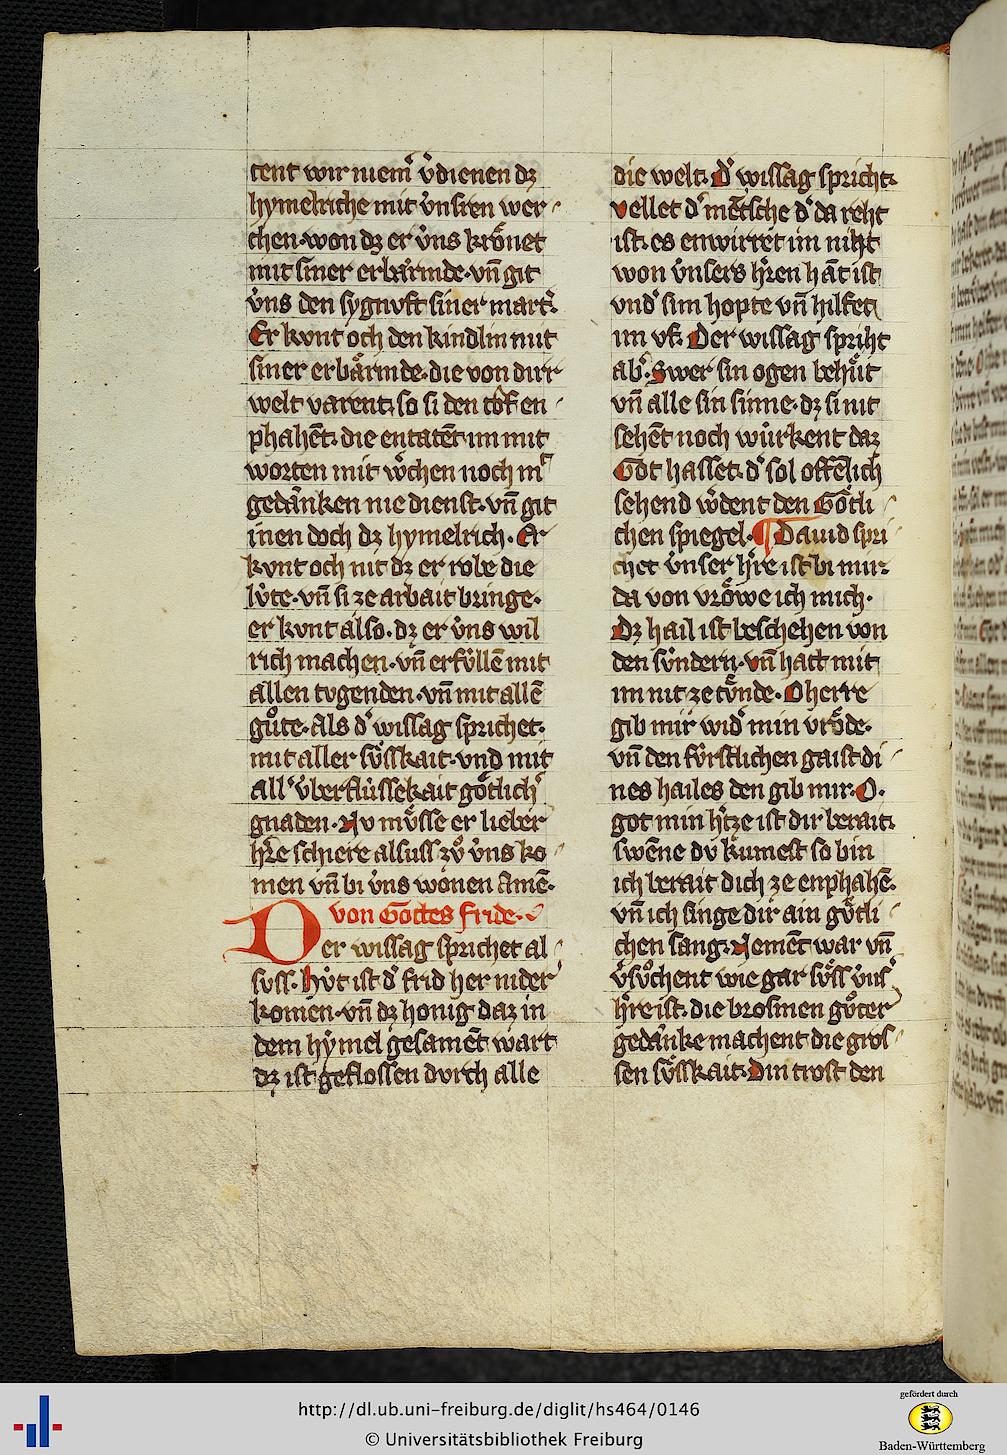 tent wir niem͛ v͛dienen dz
hymelriche mit v̉nsren wer-
chen. won dz er v̉ns krônet
mit siner erbårmde. vn̄ git
v̉ns den sygnvft siner mart͛.
Er kvnt och den kindlin mit
siner erbårmde. die von dirr
welt varent. so si den tôf en-
phahēt. die entatēt im mit
worten mit w͛chen noch mt͛
gedånken nie dienst. vn̄ git
inen doch dz hymelrich. Er
kvnt och nit dz er robe die
lv̉te. vn̄ si ze arbait bringe.
er kvnt also. dz er v̉ns wil
rich machen. vn̄ erfv̉llē mit
allen tvgenden. vn̄ mit allē
gůte. als d͛ wissag sprichet.
mit aller sv̊sskait. vnd mit
all͛ v̉berflüssekait gôtlich͛
gnaden. Nv mv̊sse er lieber
hr̄e schiere alsuss zů v̉ns ko-
men vn̄ bi v̉ns wonen Amē.
von Gottes fride.
Der wissag sprichet al-
svss. Hv̉t ist d͛ frid her nider
komen. vn̄ dz honig daz in
dem hẏmel gesamēt wart
dz ist geflossen dvrch alle
die welt. d͛ wissag spricht.
vellet d͛ mētsche d͛ da reht
ist. es enwirret im niht
won v̉nsers hr̄en hāt ist
vnd͛ sim hopte vn̄ hilfet
im vf. Der wissag spriht
ab͛. Swer sin ogen behůt
vn̄ alle sin sinne. dz si nit
sehēt noch wúrkent daz
Got hasset. d͛ sol offēlich
sehend w͛dent den Gôtli-
chen spiegel. ¶ Dauid spri-
chet v̉nser hr̄re ist bi mir.
da von vrôwe ich mich.
Dz hail ist beschehen von
den sv̉ndern. vn̄ hatt mit
im nit ze tv̊nde. O herre
gib mir wid͛ min vrôde.
vn̄ den fv̉rstlichen gaist di-
nes hailes den gib mir. O.
got min h͛tze ist dir berait.
swēne dv kumest so bin
ich berait dich ze enphahē.
vn̄ ich singe dir ain gôtli-
chen sang. Nement war vn̄
v͛sůchent wie gar sv̊ss v̉ns͛
hr̄e ist. die brosmen gůter
gedånke machent die gros-
sen sv̊sskait. Din trost den
http://dl.ub.uni-freiburg.de/diglit/hs464/0146
© Universitätsbibliothek Freiburg
gefördert durch
Baden-Württemberg